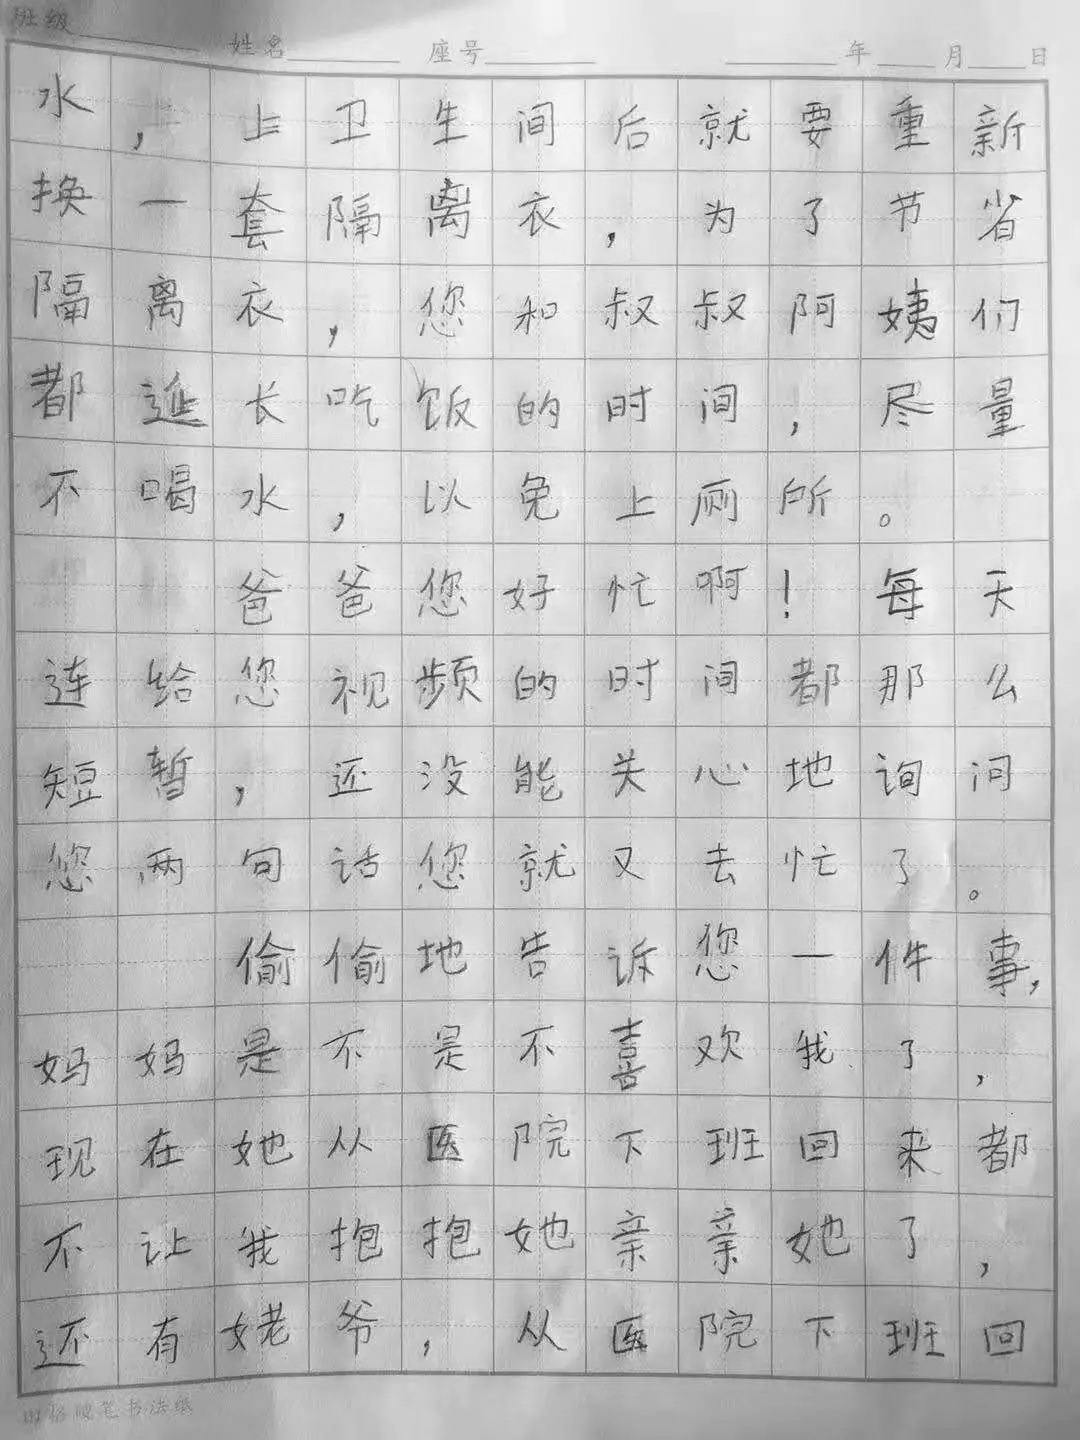 班级 姓名 座号 年 月 日
水，上卫生间后就要重新
换一套隔离衣，为了节省
隔离衣，您和叔叔阿姨们
都延长吃饭的时间，尽量
不喝水，以免上厕所。
爸爸您好忙啊！每天
连给您视频的时间都那么
短暂，还没能关心地询问
您两句话您就又去忙了。
偷偷地告诉您一件事，
妈妈是不是不喜欢我了，
现在她从医院下班回来都
不让我抱抱她亲亲她了，
还有姥爷，从医院下班回
硬笔书法纸